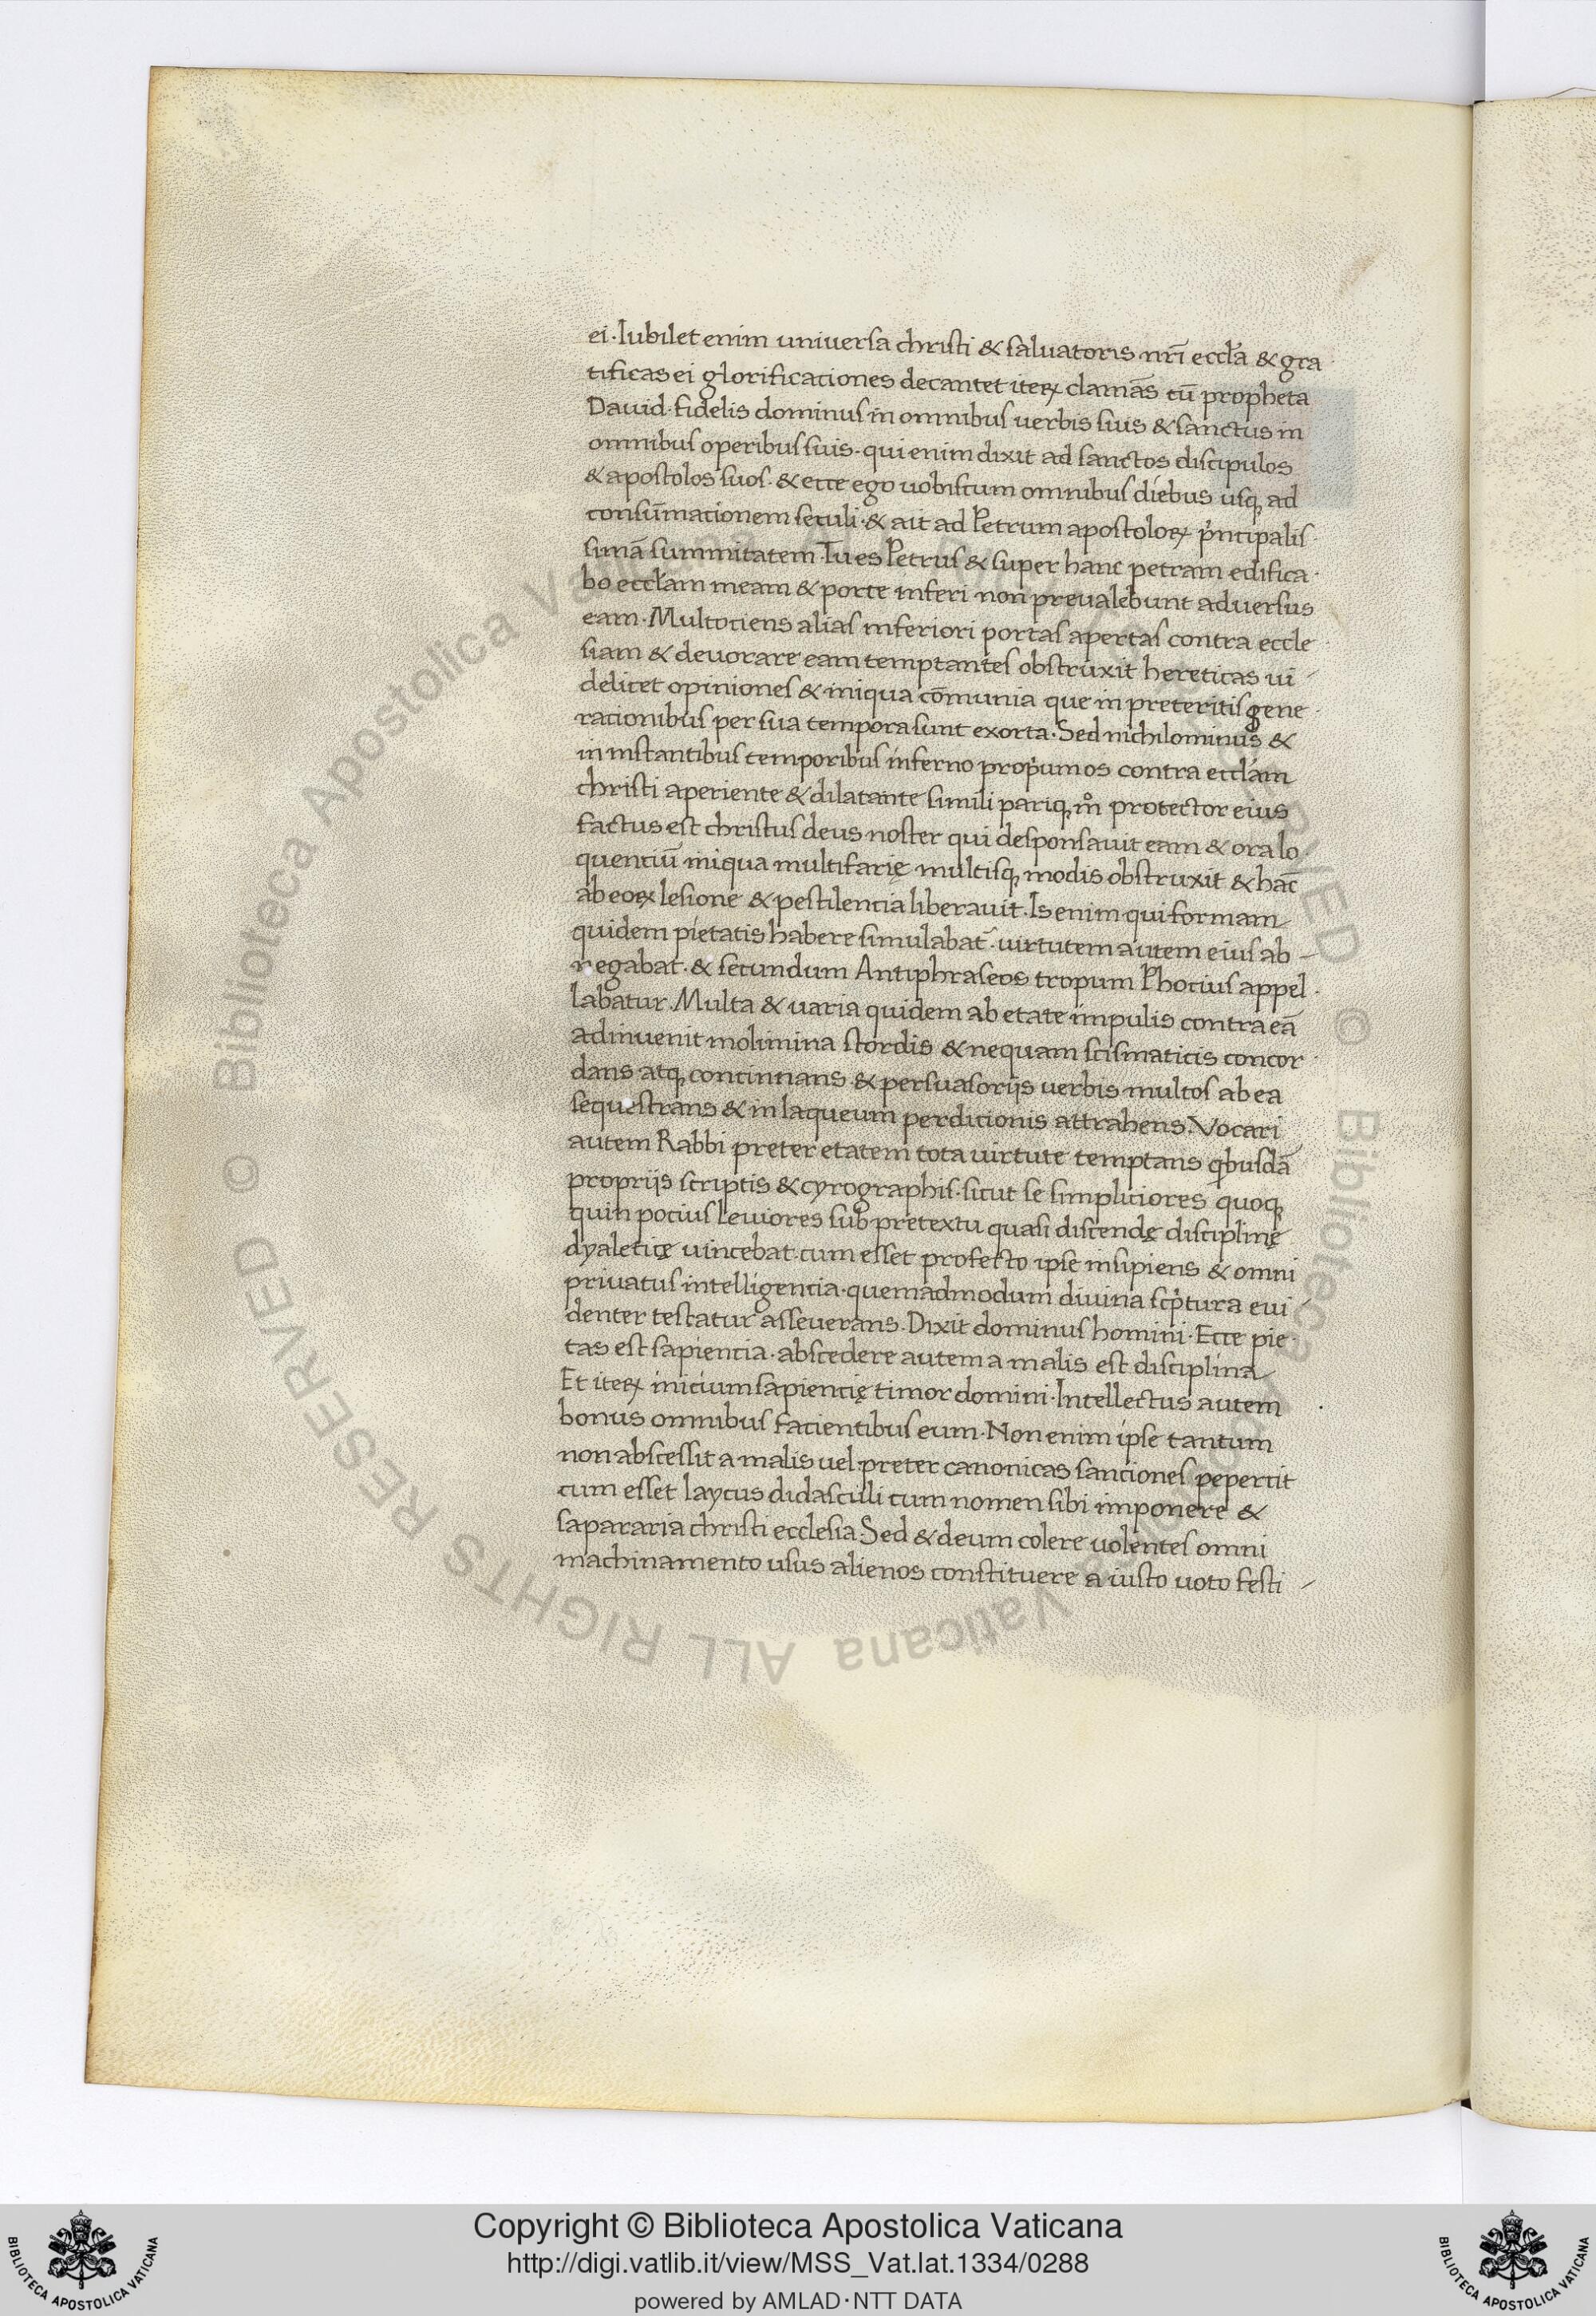 ei. Iubilet enim universa christi & saluatoris nr̄i eccl̄a & gra
tificas ei glorificaciones decantet iteꝝ clamās cū propheta
David. fidelis dominus in omnibus uerbis suis & sanctus in
omnibus operibus suis. qui enim dixit ad sanctos discipulos
& apostolos suos. & ecce ego uobiscum omnibus diebus usq̨ ad
consūmacionem seculi. & ait ad Petrum apostoloꝝ pͥncipalis
simā summitatem. Tu es Petrus & super hanc petram edifica
bo eccl̄am meam & porte inferi non preualebunt aduersus
eam. Multociens alias inferiori portas apertas contra eccle
siam & deuorare eam temptantes obstruxit hereticas ui
delicet opiniones & iniqua cōmunia que in preteritis gene
racionibus per sua tempora sunt exorta. Sed nichilominus &
in instantibus temporibus inferno propͥum os contra eccl̄am
christi aperiente & dilatante simili pariq̨ mͦ protector eius
factus est christus deus noster qui desponsauit eam & ora lo
quenciū iniqua multifarię multisq̨ modis obstruxit & hāc
ab eoꝝ lesione & pestilencia liberauit. Is enim qui formam
quidem pietatis habere simulabat. uirtutem autem eius ab
negabat. & secundum Antiphraseos tropum Phocius appel
labatur. Multa & uaria quidem ab etate impulis contra eā
adinuenit molimina scordis & nequam scismaticis concor
dans atq̨ concinnans & persuasorijs uerbis multos ab ea
sequestrans & in laqueum perdicionis attrahens. Vocari
autem Rabbi preter etatem tota uirtute temptans qͥbusdā
proprijs scriptis & cyrographis. sicut se simpliciores quoq̨
quin pocius leuiores sub pretextu quasi discendę disciplinę
dyaleticę uincebat. cum esset profecto ipse insipiens & omni
priuatus intelligencia. quemadmodum diuina scpͥtura eui
denter testatur asseuerans. Dixit dominus homini. Ecce pie
tas est sapiencia. abscedere autem a malis est disciplina
Et iteꝝ inicium sapiencię timor domini. Intellectus autem
bonus omnibus facientibus eum. Non enim ipse tantum
non abscessit a malis uel preter canonicas sanciones pepercit
cum esset laycus didasculi cum nomen sibi imponere &
sapararia christi ecclesia. Sed & deum colere uolentes omni
machinamento usus alienos constituere a iusto uoto festi
© Biblioteca Apostolica Vaticana ALL RIGHTS RESERVED
© Biblioteca Apostolica Vaticana ALL RIGHTS RESERVED
Copyright © Biblioteca Apostolica Vaticana
http://digi.vatlib.it/view/MSS_Vat.lat.1334/0288
powered by AMLAD·NTT DATA
BIBLIOTECA APOSTOLICA VATICANA
BIBLIOTECA APOSTOLICA VATICANA